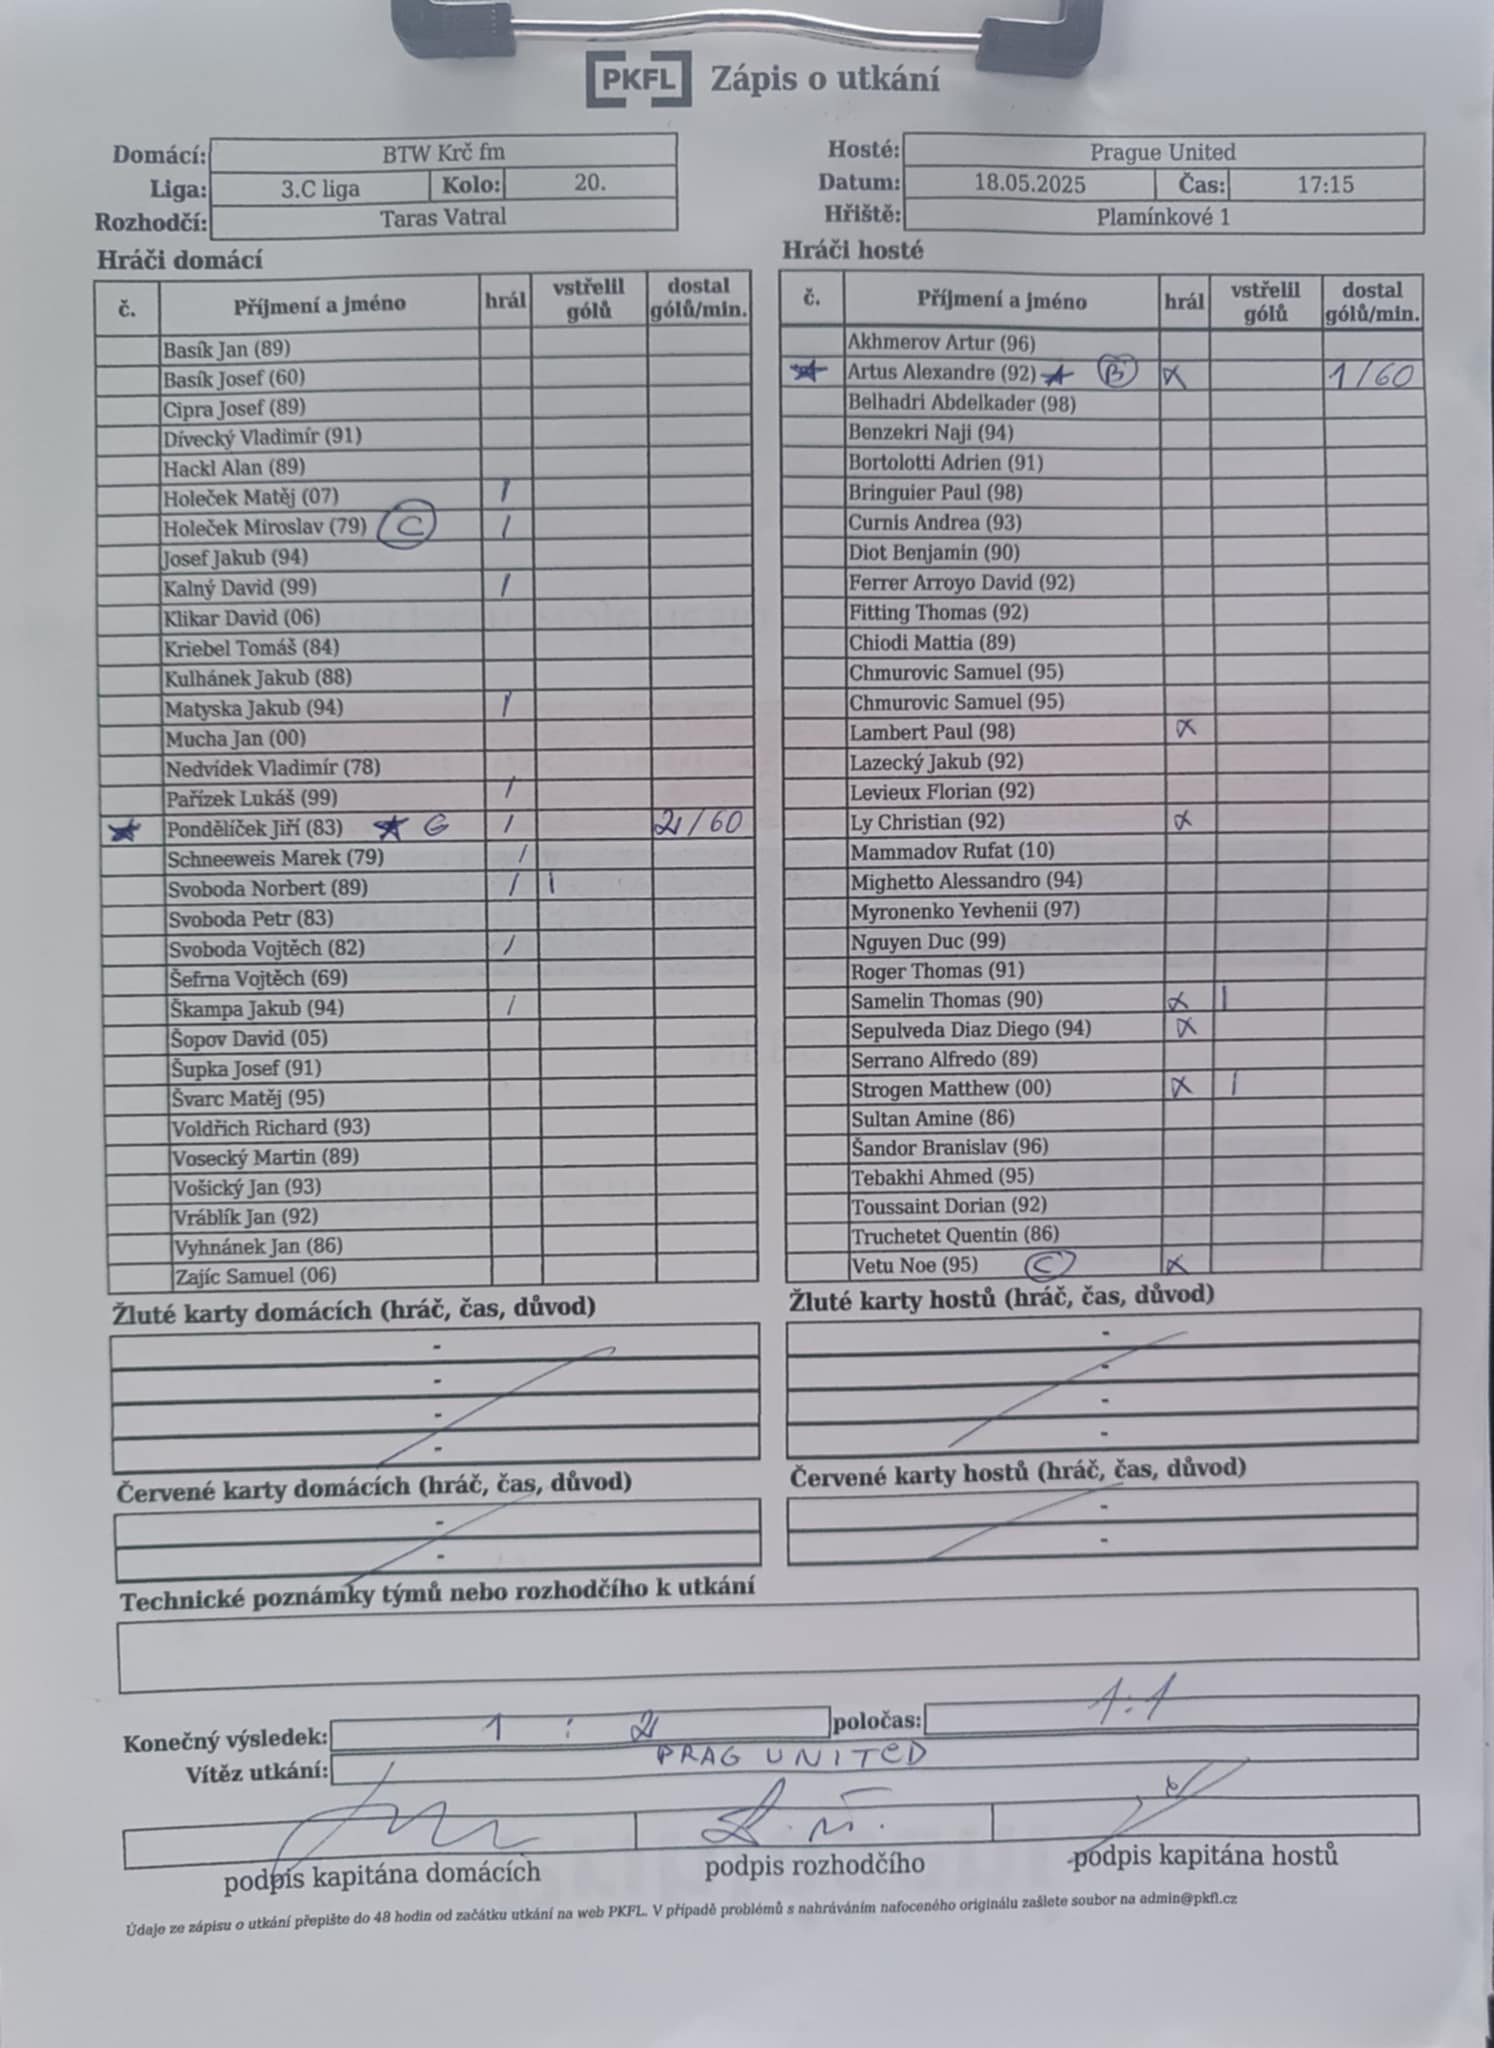 PKFL Zápis o utkání
Domácí: BTW Krč fm
Liga: 3.C liga Kolo: 20.
Rozhodčí: Taras Vatral
Hosté: Prague United
Datum: 18.05.2025 Čas: 17:15
Hřiště: Plamínkové 1
Hráči domácí
č. Příjmení a jméno hrál vstřelil gólů dostal gólů/min.
Basík Jan (89)
Basík Josef (60)
Cipra Josef (89)
Dívecký Vladimír (91)
Hackl Alan (89)
Holeček Matěj (07) /
Holeček Miroslav (79) C /
Josef Jakub (94)
Kalný David (99) /
Klikar David (06)
Kriebel Tomáš (84)
Kulhánek Jakub (88)
Matyska Jakub (94) /
Mucha Jan (00)
Nedvídek Vladimír (78)
Pařízek Lukáš (99) /
★ Pondělíček Jiří (83) ★ G / 2/60
Schneeweis Marek (79) /
Svoboda Norbert (89) / 1
Svoboda Petr (83)
Svoboda Vojtěch (82) /
Šefrna Vojtěch (69)
Škampa Jakub (94) /
Šopov David (05)
Šupka Josef (91)
Švarc Matěj (95)
Voldřich Richard (93)
Vosecký Martin (89)
Vošický Jan (93)
Vráblík Jan (92)
Vyhnánek Jan (86)
Zajíc Samuel (06)
Hráči hosté
č. Příjmení a jméno hrál vstřelil gólů dostal gólů/min.
Akhmerov Artur (96)
★ Artus Alexandre (92) ★ B x 1/60
Belhadri Abdelkader (98)
Benzekri Naji (94)
Bortolotti Adrien (91)
Bringuier Paul (98)
Curnis Andrea (93)
Diot Benjamin (90)
Ferrer Arroyo David (92)
Fitting Thomas (92)
Chiodi Mattia (89)
Chmurovic Samuel (95)
Chmurovic Samuel (95)
Lambert Paul (98) x
Lazecký Jakub (92)
Levieux Florian (92)
Ly Christian (92) x
Mammadov Rufat (10)
Mighetto Alessandro (94)
Myronenko Yevhenii (97)
Nguyen Duc (99)
Roger Thomas (91)
Samelin Thomas (90) x 1
Sepulveda Diaz Diego (94) x
Serrano Alfredo (89)
Strogen Matthew (00) x 1
Sultan Amine (86)
Šandor Branislav (96)
Tebakhi Ahmed (95)
Toussaint Dorian (92)
Truchetet Quentin (86)
Vetu Noe (95) C x
Žluté karty domácích (hráč, čas, důvod)
-
-
-
-
Žluté karty hostů (hráč, čas, důvod)
-
-
-
-
Červené karty domácích (hráč, čas, důvod)
-
-
Červené karty hostů (hráč, čas, důvod)
-
-
Technické poznámky týmů nebo rozhodčího k utkání
Konečný výsledek: 1 : 2 poločas: 1:1
Vítěz utkání: PRAG UNITED
podpis kapitána domácích podpis rozhodčího podpis kapitána hostů
Údaje ze zápisu o utkání přepište do 48 hodin od začátku utkání na web PKFL. V případě problémů s nahráváním nafoceného originálu zašlete soubor na admin@pkfl.cz